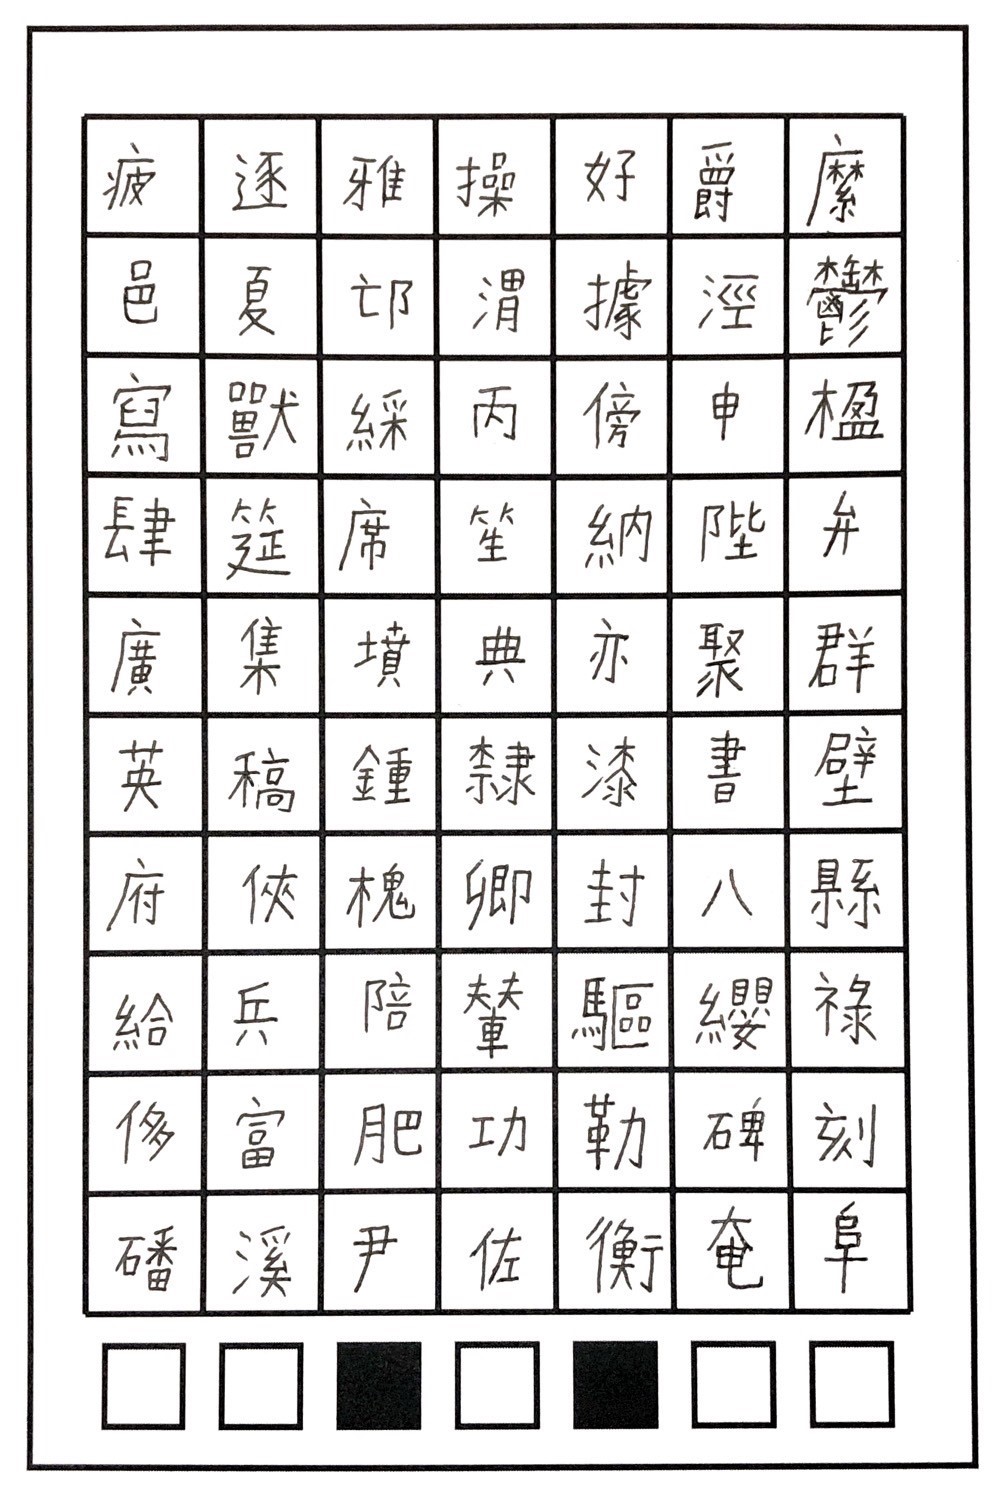 疲逐雅操好爵縻
邑夏邙渭據涇鬱
寫獸綵丙傍申楹
肆筵席笙納陛弁
廣集墳典亦聚群
英稿鍾隸漆書壁
府俠槐卿封八縣
給兵陪輦驅纓祿
侈富肥功勒碑刻
磻溪尹佐衡奄阜